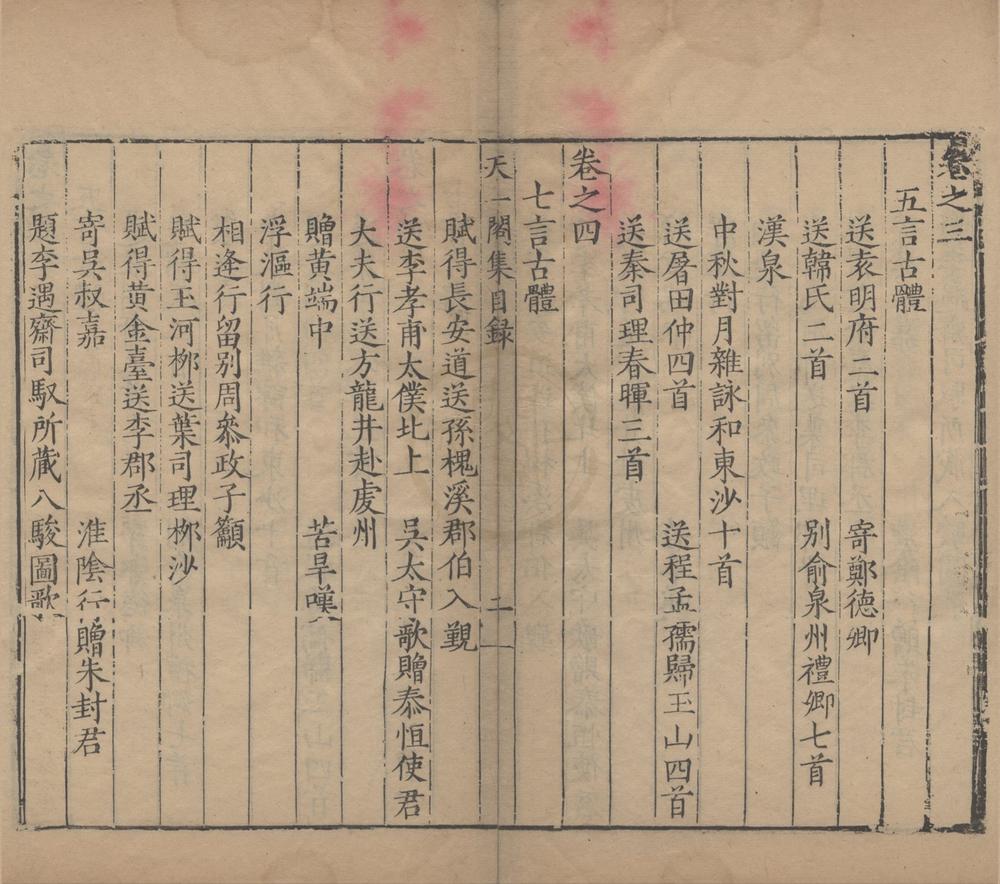 卷之三
五言古體
送袁明府二首 寄鄭德卿
送韓氏二首 別俞泉州禮卿七首
漢泉
中秋對月雜詠和東沙十首
送屠田仲四首 送程孟孺歸玉山四首
送秦司理春暉三首
卷之四
七言古體
天一閣集目録 二
賦得長安道送孫槐溪郡伯入覲
送李孝甫太僕北上 吳太守歌贈泰恒使君
大夫行送方龍井赴處州
贈黃端中 苦旱嘆
浮漚行
相逢行留別周叅政子籲
賦得玉河栁送葉司理栁沙
賦得黃金臺送李郡丞
寄吳叔嘉 淮陰行贈朱封君
題李遇齋司馭所蔵八駿圖歌